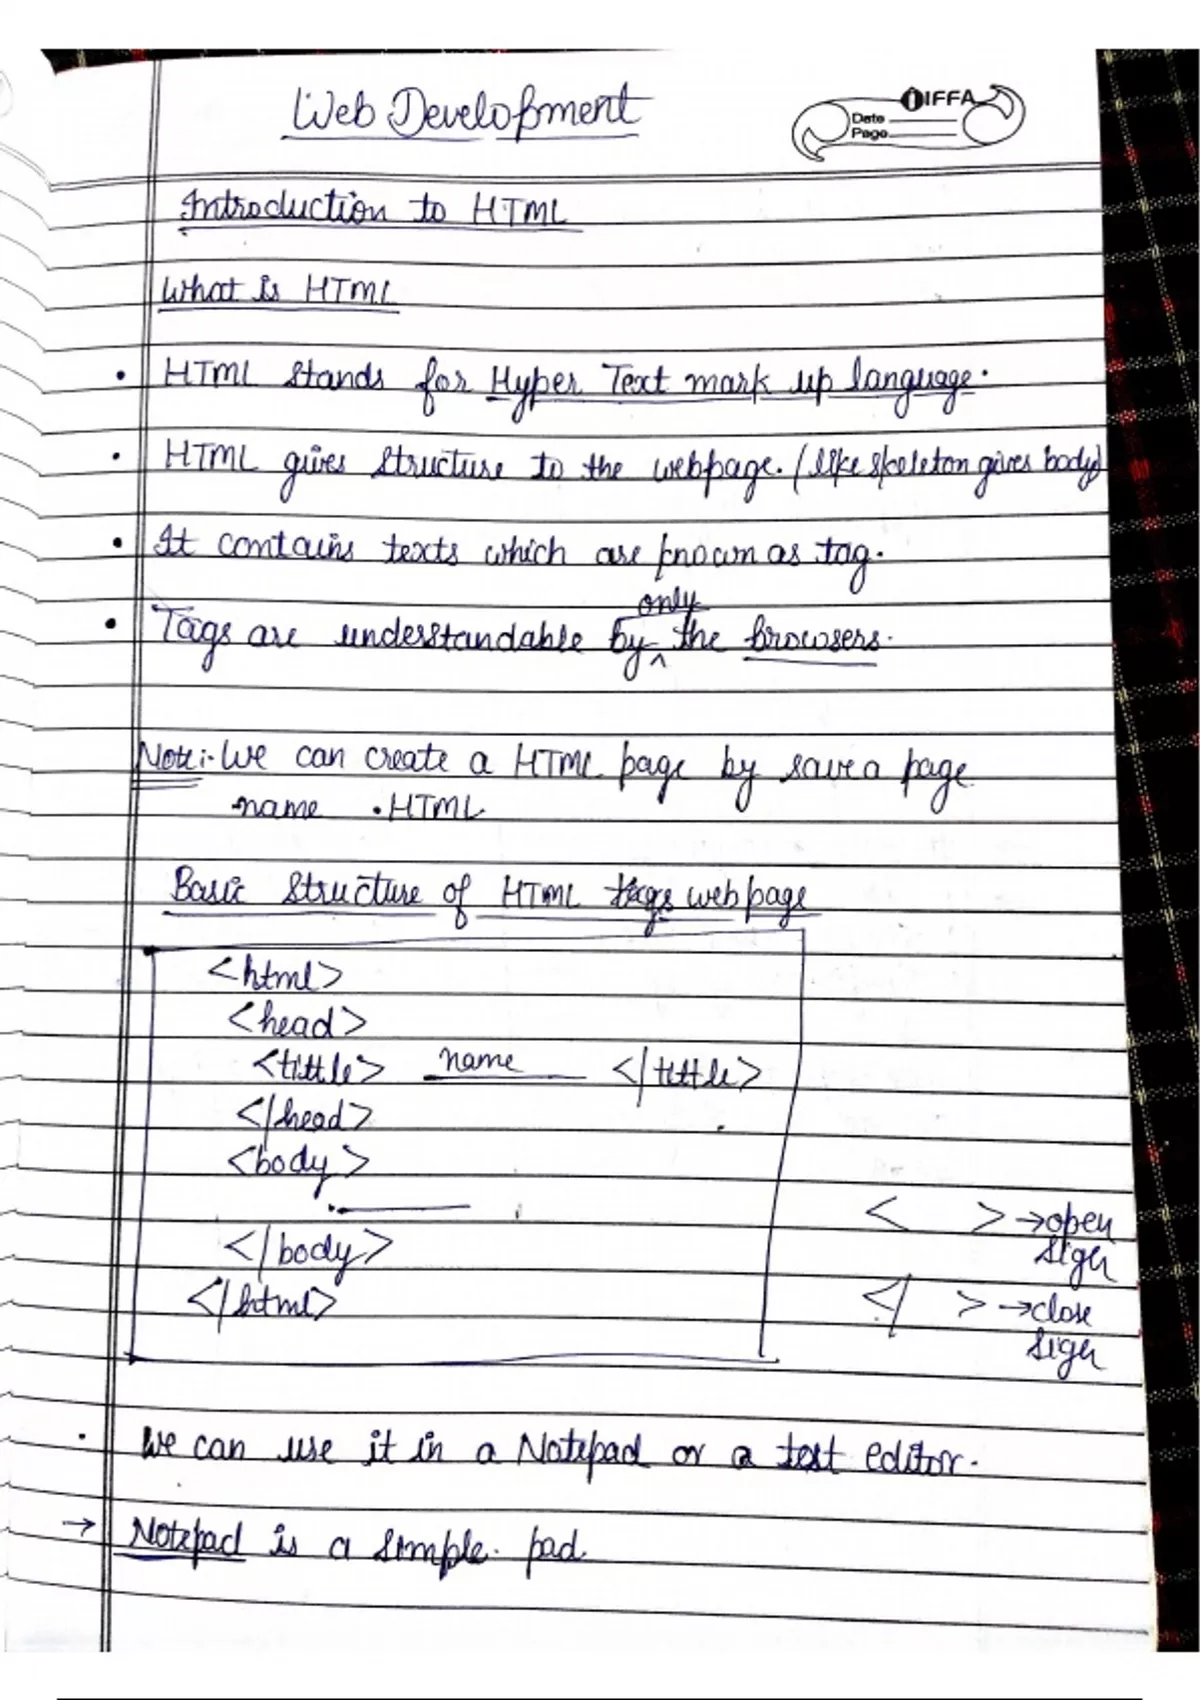 Web Development
IFFA
Date
Page
Introduction to HTML
What is HTML
• HTML stands for Hyper Text mark up language.
• HTML gives structure to the webpage. (like skeleton gives body)
• It contains texts which are known as tag.
only
• Tags are understandable by ^ the browsers.
Note:- We can create a HTML page by save a page
name .HTML
Basic structure of HTML tags webpage
<html>
<head>
<tittle> name </tittle>
</head>
<body>
</body>
</html>
< > →open
sign
</ > →close
sign
• We can use it in a Notepad or a text editor.
→ Notepad is a simple. pad.